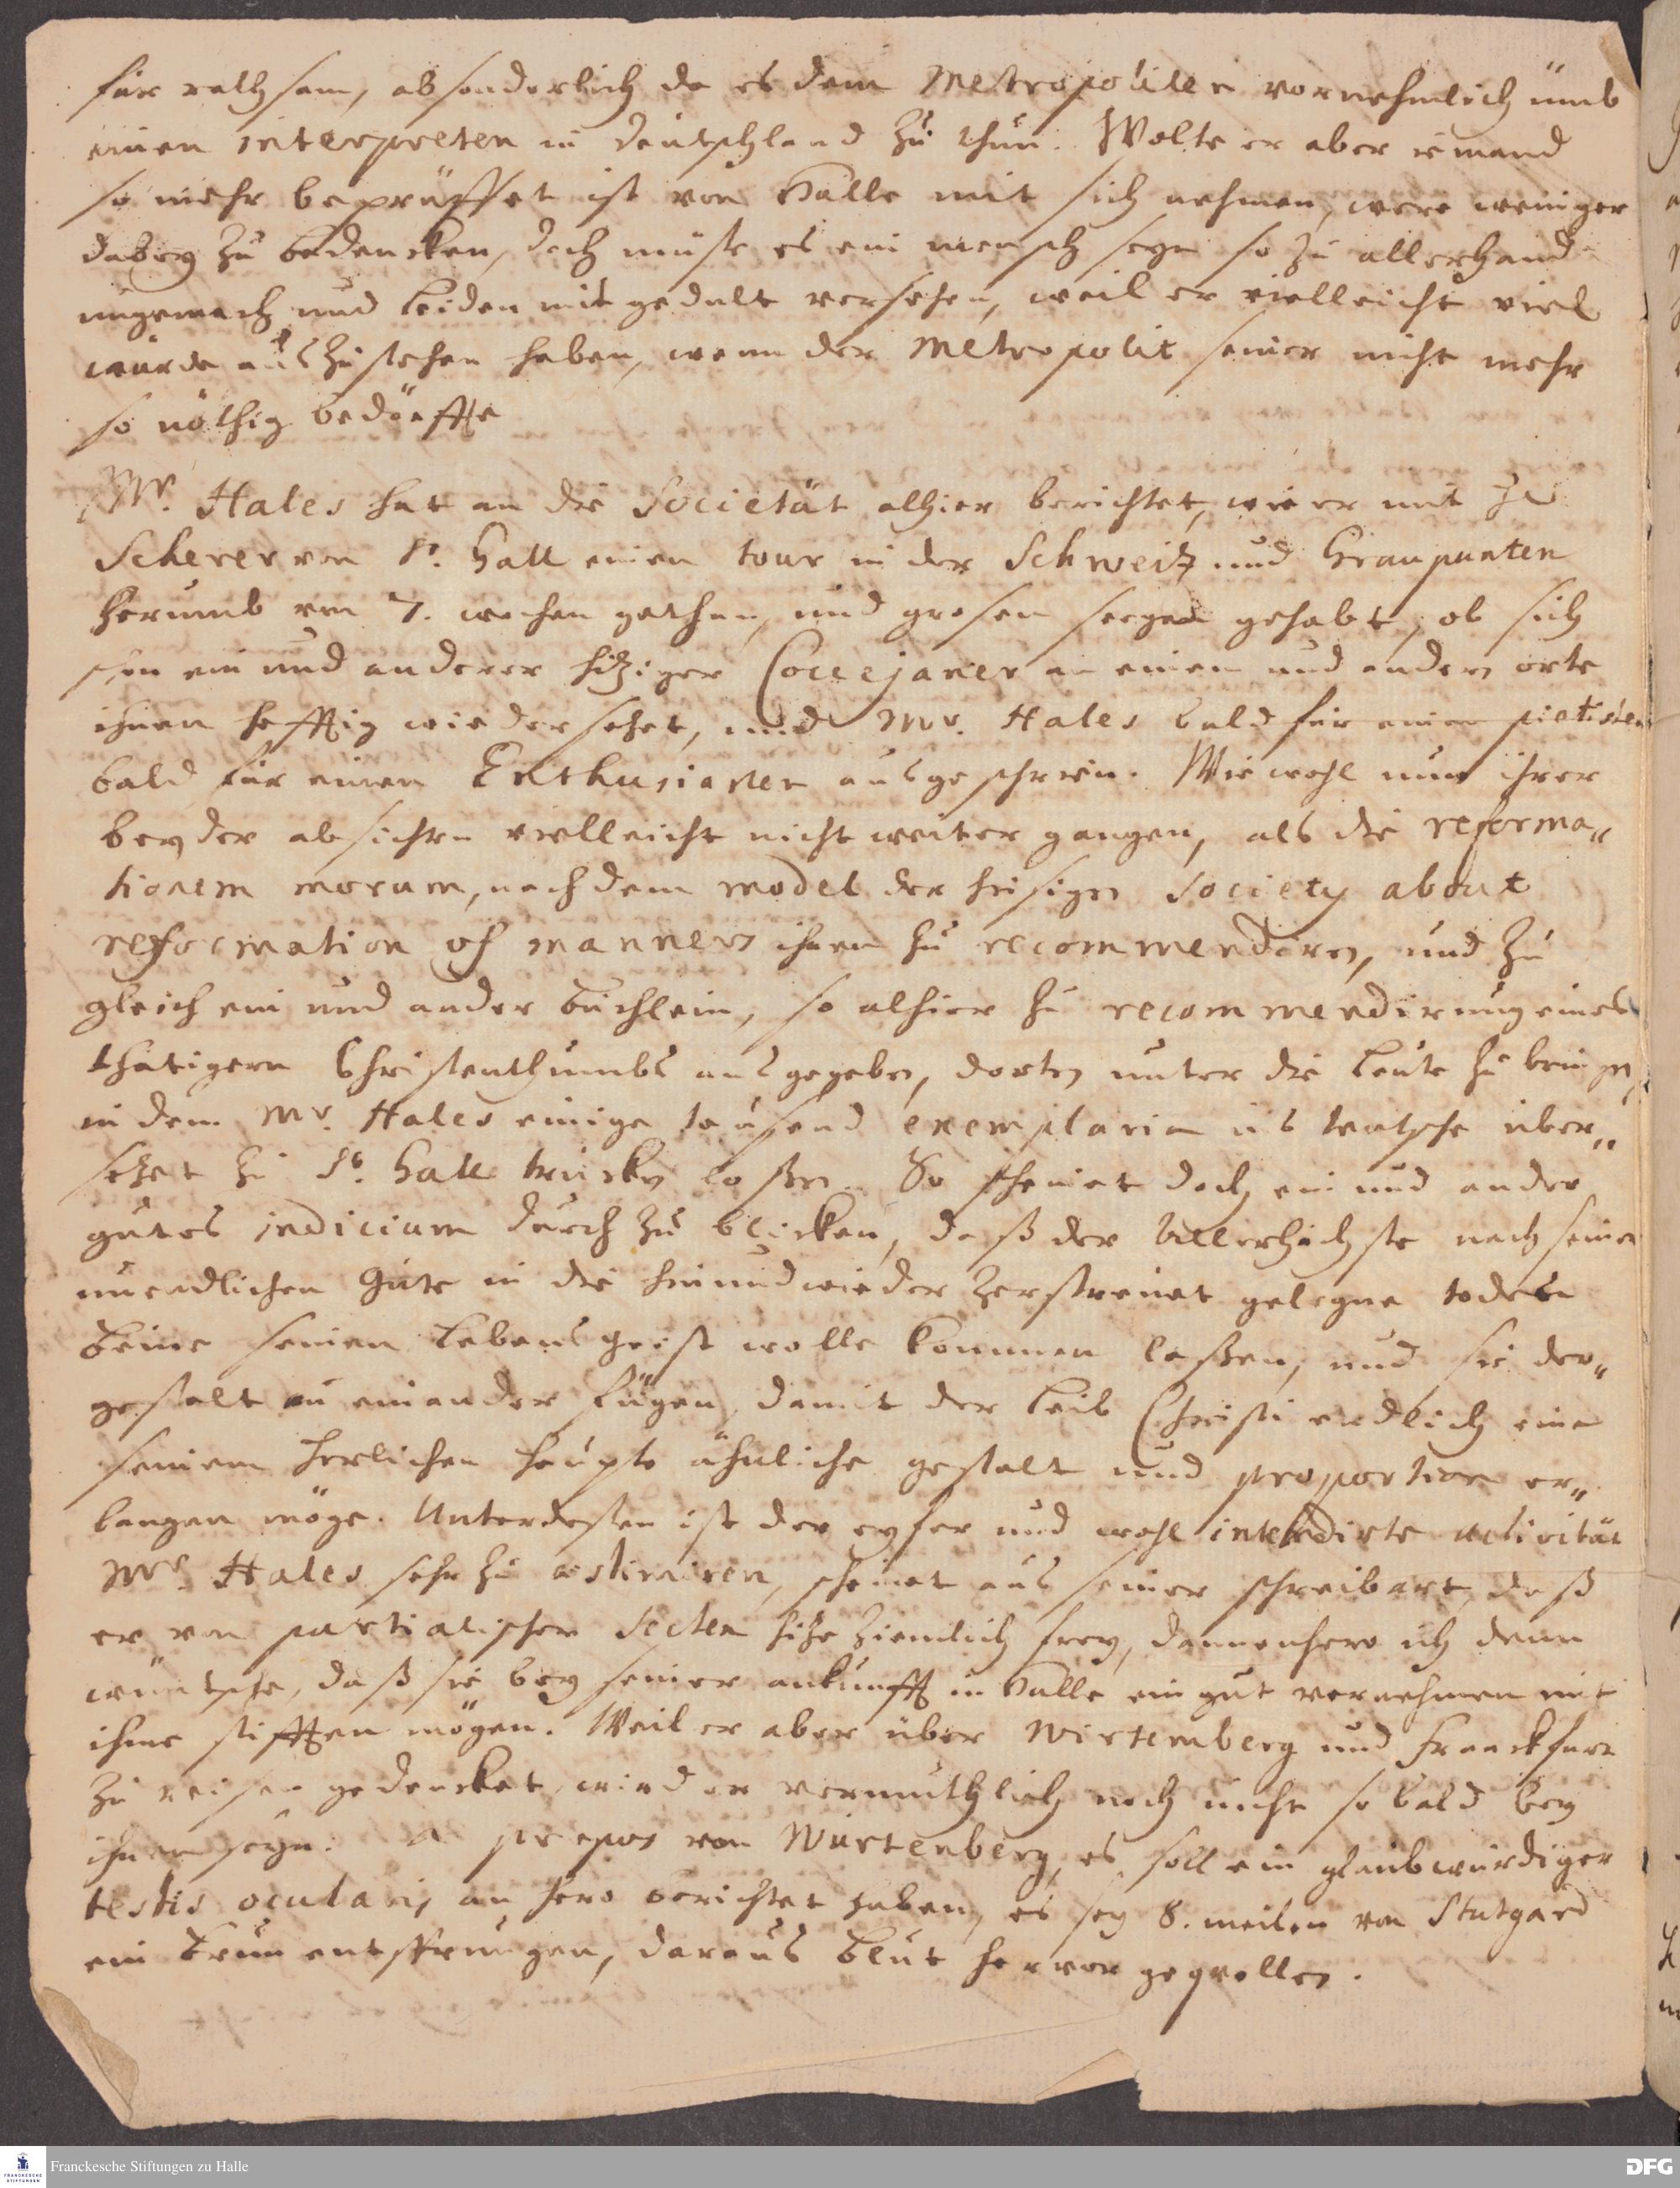 für rathsam, absonderlich da es dem Metropoliten vornehmlich ümb
einen interpreten in Deutschland zu thun. Wolte er aber iemand
so mehr beprüffet ist von Halle mit sich nehmen, were weniger
dabey zu bedencken, doch müste es ein mensch seyn so zu allerhand
ungemach und leiden mit gedult versehen, weil er vielleicht viel
würde auszustehen haben, wenn der Metropolit seiner nicht mehr
so nöthig bedörffte
Mr. Hales hat an die Societät alhier berichtet, wie er mit H
Scherer von St. Gall einen tour in der Schweitz und Graupünten
herumb von 7. wochen gethan, und grosen seegen gehabt, ob sich
schon ein und anderer hitziger Coccejaner an einem und andern orte
ihnen hefftig wiedersetzet, und Mr. Hales bald für einen pietisten
bald für einen Enthusiasten ausgeschrien. Wiewohl nun ihrer
beyder absichten vielleicht nicht weiter gangen, als die reforma„
tionem morum, nach dem model der hiesigen society about
reformation of manners ihnen zu recommendiren, und zu
gleich ein und ander büchlein, so alhier zu recommendirung eines
thätigern Christenthumbs ausgegeben, dorten unter die leute zu bringen,
in dem Mr. Hales einige tausend exemplarien ins teutsche über„
setzet zu St. Gall trucken laßen. So scheinet doch ein und ander
gutes indicium durch zu blicken, daß der Allerhöchste nach seiner
unendlichen Güte in die hin und wieder zerstreuet gelegne todten
beine seinen lebens geist wolle kommen laßen, und sie der„
gestalt an einander fügen, damit der leib Christi endlich eine
seinem herlichen haupte ähnliche gestalt und proportion er„
langen möge. Unterdeßen ist der eyfer und wohl intendirte activität
Mr. Hales sehr zu æstimiren, scheinet aus seiner schreibart, daß
er von partialischer Secten hitze ziemlich frey, dannenhero ich denn
wüntsche, daß sie bey seiner ankunfft in Halle ein gut vernehmen mit
ihme stifften mögen. Weil er aber über Wirtemberg und Franckfurt
zu reisen gedencket, wird er vermuthlich noch nicht so bald bey
ihnen seyn. A propos von Würtenberg, es soll ein glaubwürdiger
testis ocularis an hero berichtet haben, es sey 8. meilen von Stutgard
ein brun entsprungen, daraus blut hervor gequollen.
Franckesche Stiftungen zu Halle
FRANCKESCHE STIFTUNGEN
DFG